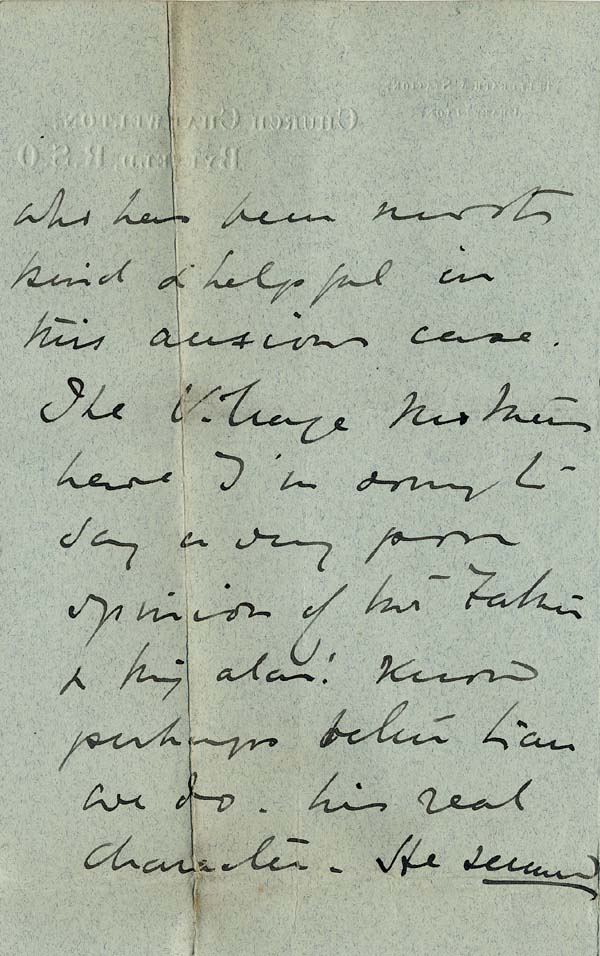 CHURCH CHARWELTON,
BYFIELD, R.S.O.
who has been most
kind & helpful in
this anxious case.
The Village Mothers
have I'm sorry to
say a very poor
opinion of Father
& they alas! know
perhaps better than
we do - his real
character - He seemed